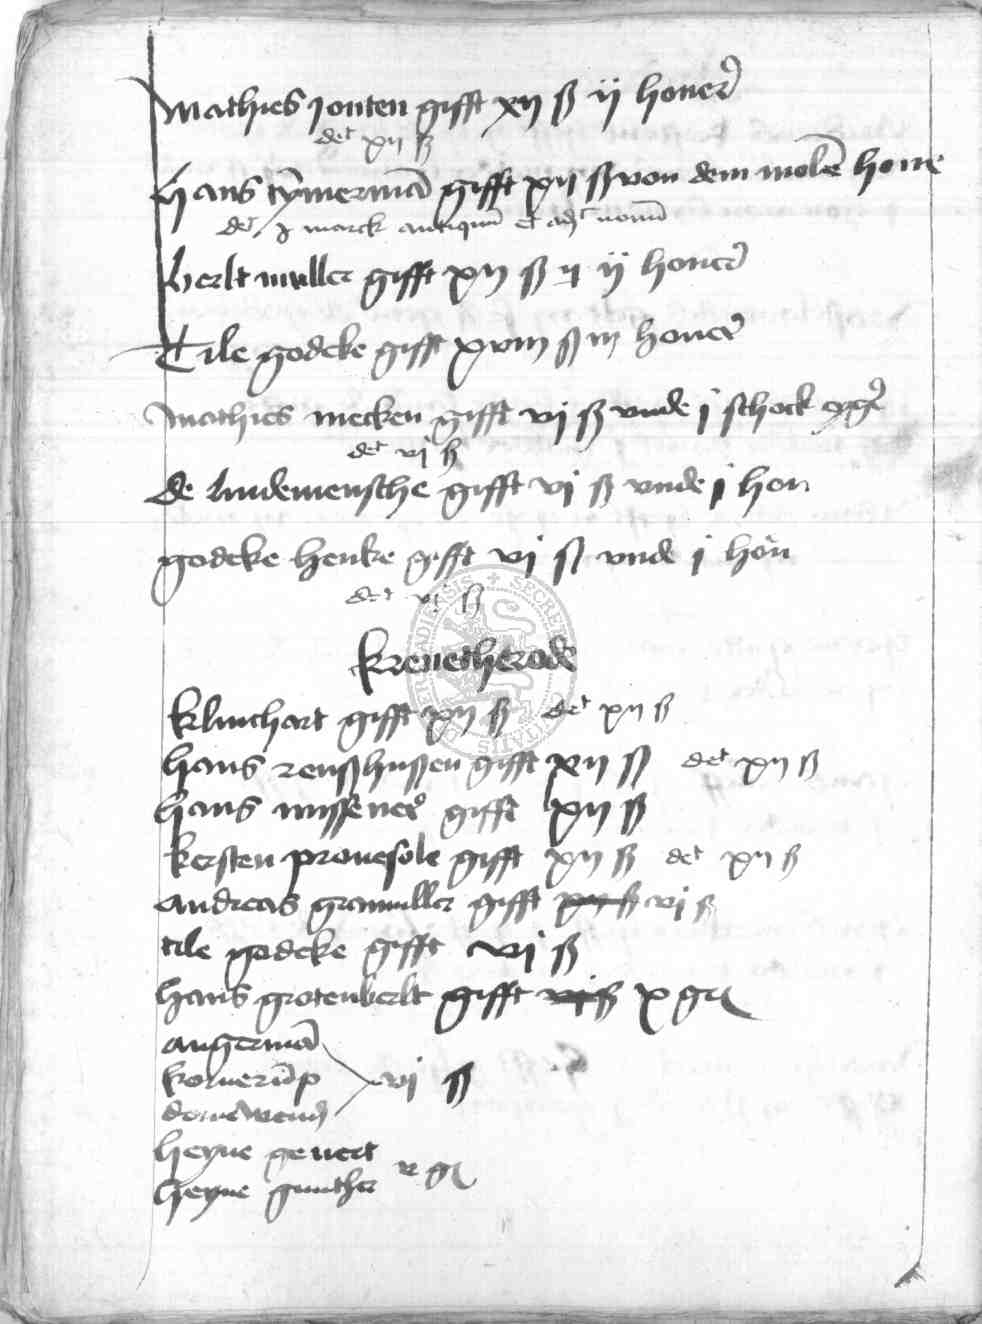 Mathies Jonten gifft xij ß ij honer
det xij ß
Hans tymerman gifft xij ß von dem molen hone
det j marck antiquam et adhuc novam
Berlt muller gifft xij ß ij honer
Tile godeke gifft xviij ß iij honer
Mathies mecken gifft vj ß vnde j schock eyger
det vj ß
De lindemensche gifft vj ß vnde j hon
godeke henke gifft vj ß vnde j hon
det vj ß
Kreuetherode
Klinchart gifft xij ß det xij ß
hans renßhußen gifft xij ß det xij ß
hans missener gifft xij ß
kersten prouesole gifft xij ß det xij ß
andreas gramuller gifft xij ß vj ß
tile godeke gifft vj ß
hans grotenberlt gifft vj ß x gr
angerman
vj ß
heyne gevert
heyne gunther gr